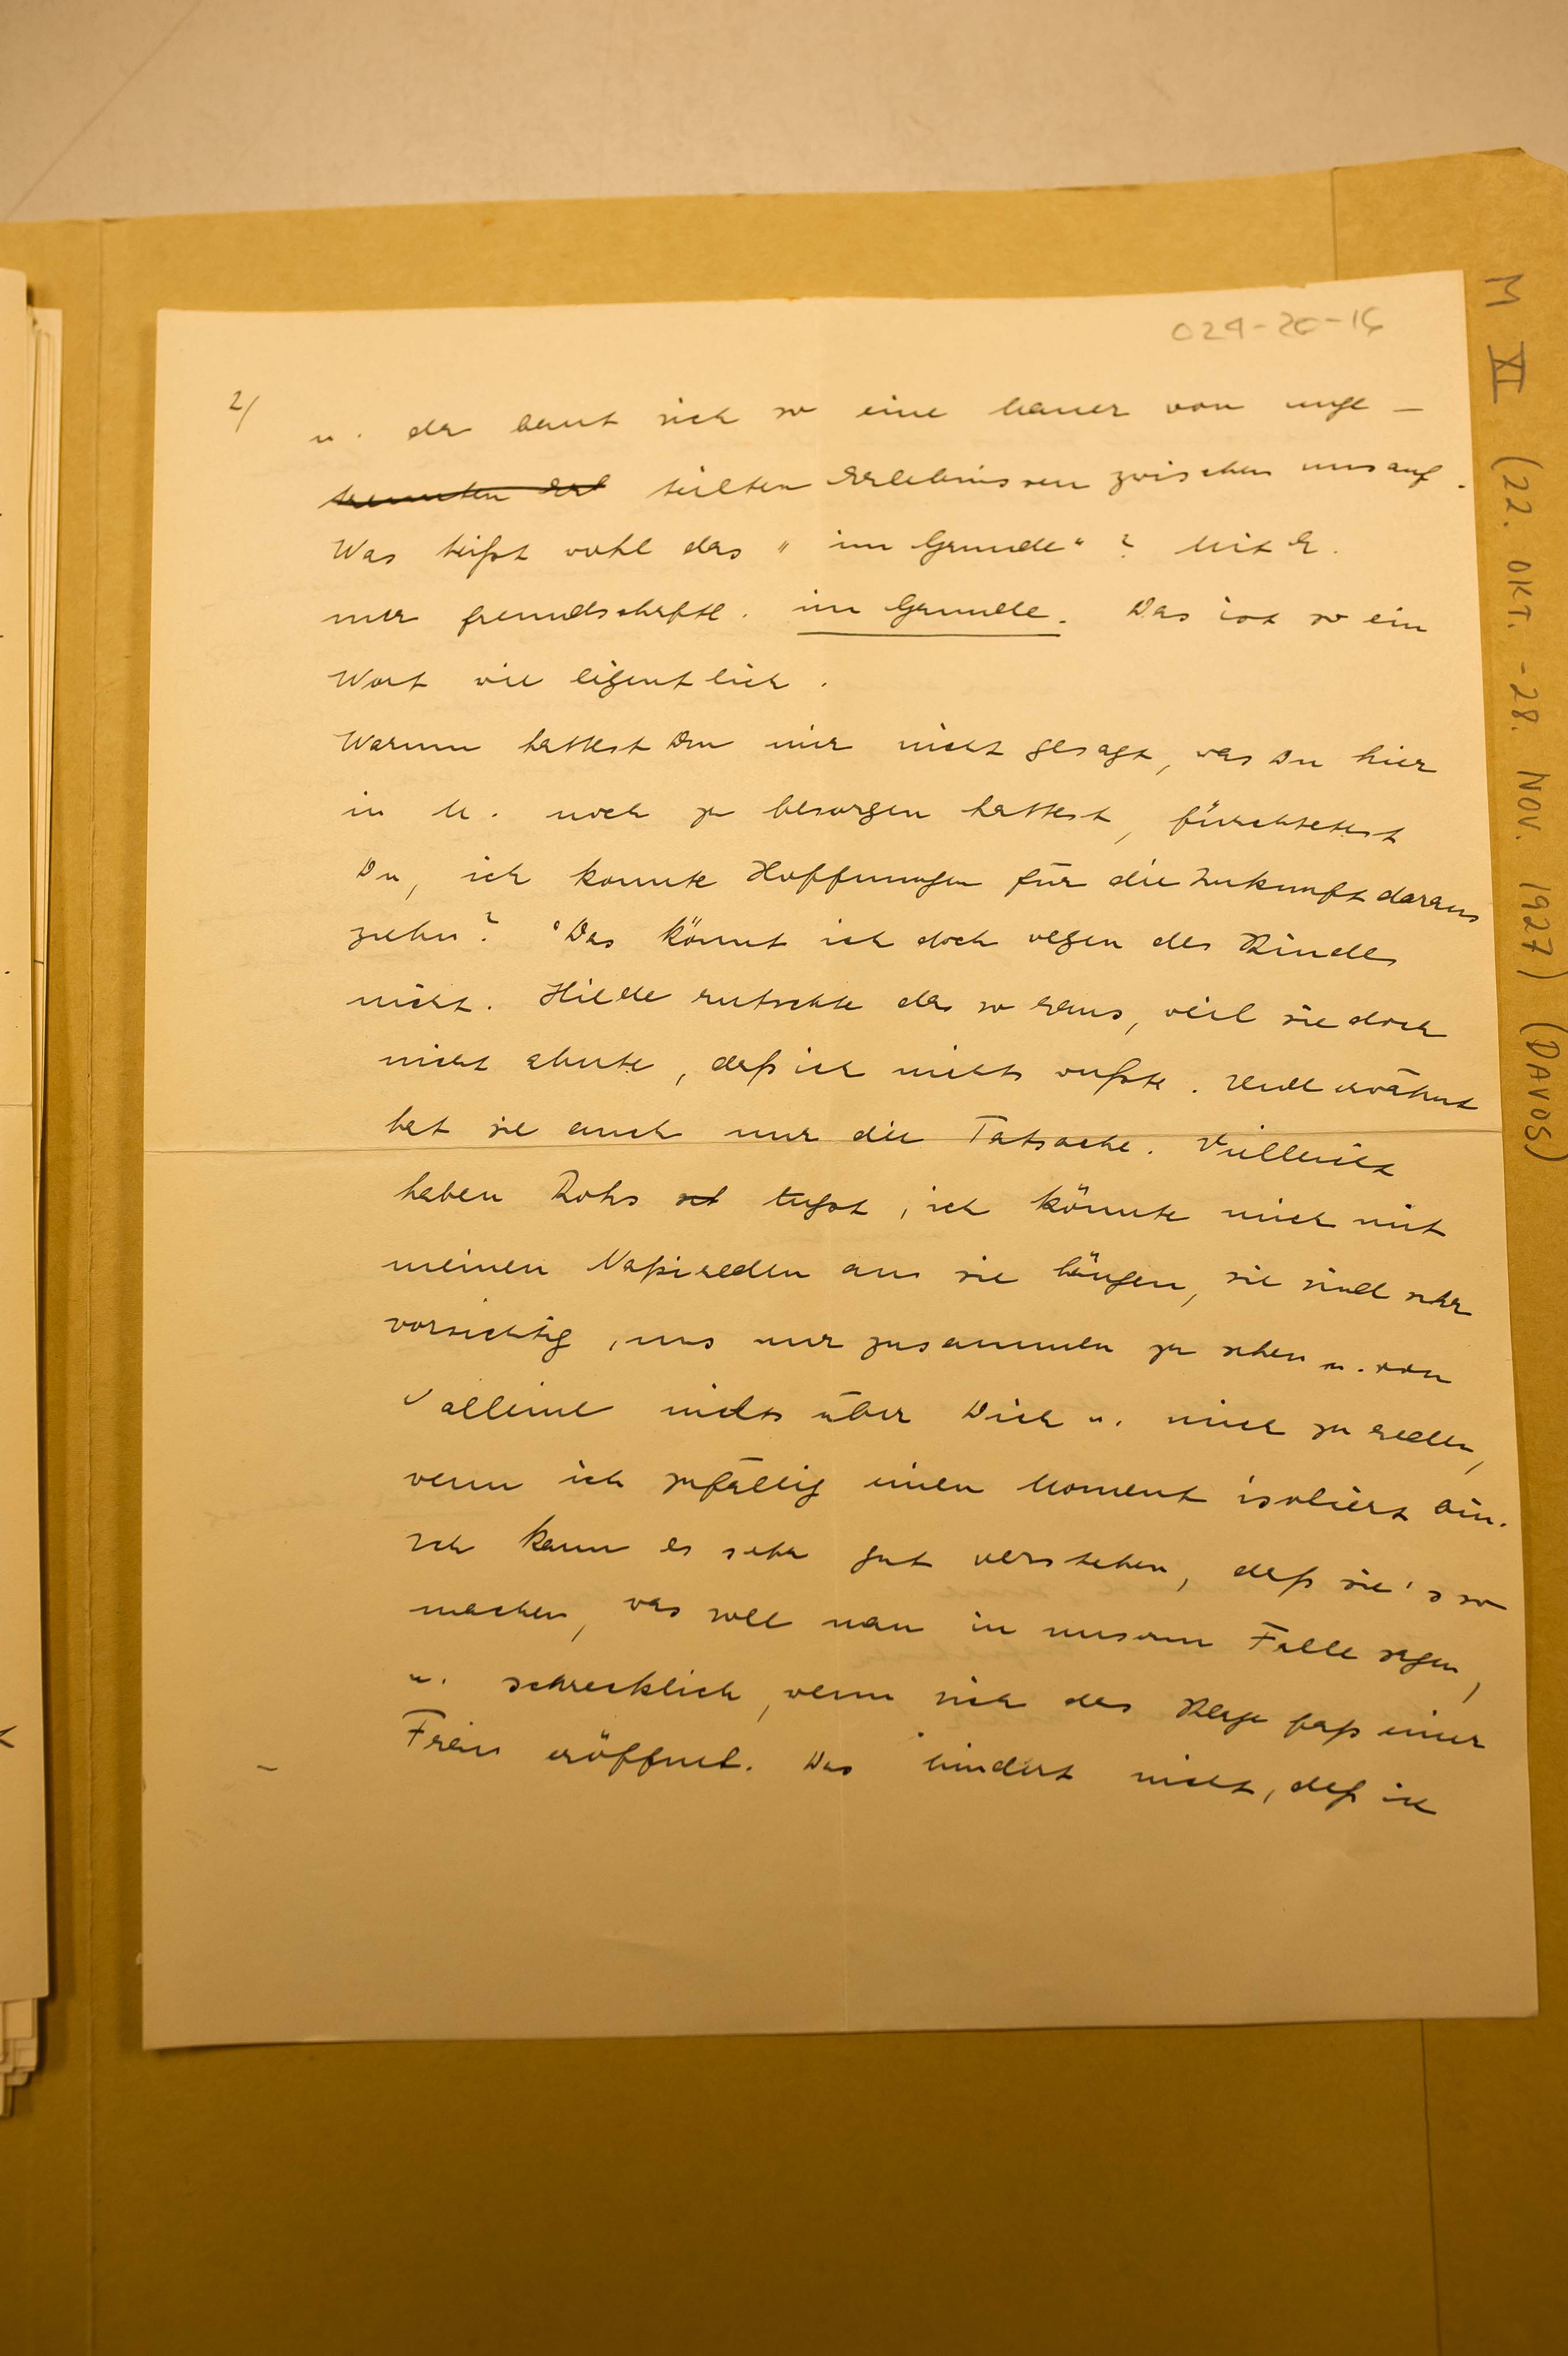 024-20-16
2/
u. da baut sich so eine Mauer von unge-
teilten Erlebnissen zwischen uns auf.
Was heißt wohl das "im Grunde"? Mit E.
nur freundschaftl. im Grunde. Das ist so ein
Wort wie eigentlich.
Warum hattest Du mir nicht gesagt, was Du hier
in M. noch zu besorgen hattest, fürchtetest
Du, ich konnte Hoffnungen für die Zukunft daraus
ziehn? Das könnt ich doch wegen des Kindes
nicht. Hilde rutschte das so raus, weil sie doch
nicht ahnte, daß ich nichts wußte. Und erwähnt
hat sie auch nur die Tatsache. Vielleicht
haben Rohs Angst, ich könnte mich mit
meinen reden an sie hängen, sie sind sehr
vorsichtig, uns nur zusammen zu sehen u. von
alleine nichts über Dich u. mich zu reden,
wenn ich zufällig einen Moment isoliert bin.
Ich kann es sehr gut verstehen, daß sie's so
machen, was soll man in unserm Falle sagen,
u. schrecklich, wenn sich das Klagefaß einer
Frau eröffnet. Das hindert nicht, daß ich
M XI (22. OKT. - 28. NOV. 1927) (DAVOS)